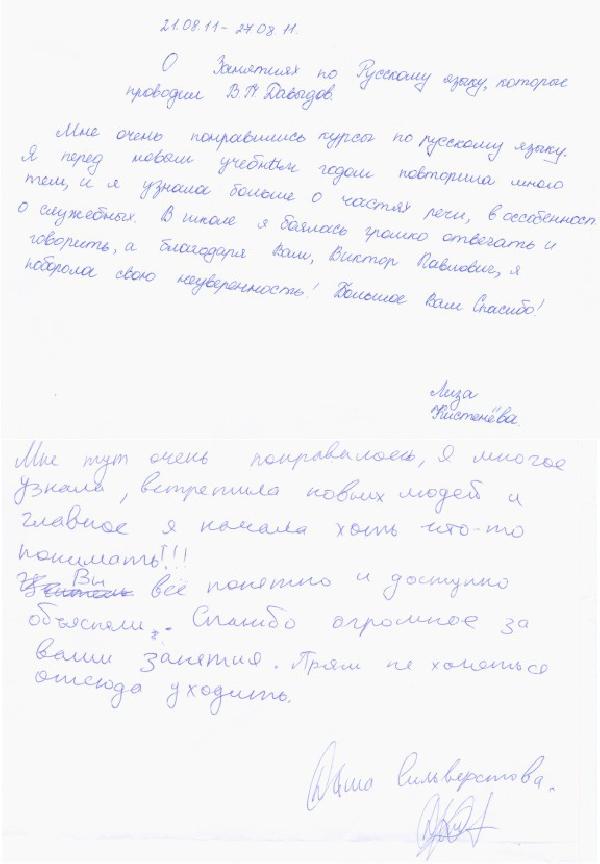 21.08.11 - 27.08.11.
О Занятиях по Русскому языку, которые
проводил В.П Давыдов.
Мне очень понравились курсы по русскому языку.
Я перед новым учебным годом повторила много
тем, и я узнала больше о частях речи, в особенност.
о служебных. В школе я боялась громко отвечать и
говорить, а благодаря Вам, Виктор Павлович, я
поборола свою неуверенность! Большое Вам Спасибо!
Лиза
Кистенёва.
Мне тут очень понравылось, Я многое
узнала, встретила новых людей и
главное я начала хоть что-то
понимать!!!
Вы всё понятно и доступно
объясняли. Спасибо огромное за
ваши занятия. Прям не хочеться
отсюда уходить.
Даша Сильверстова.